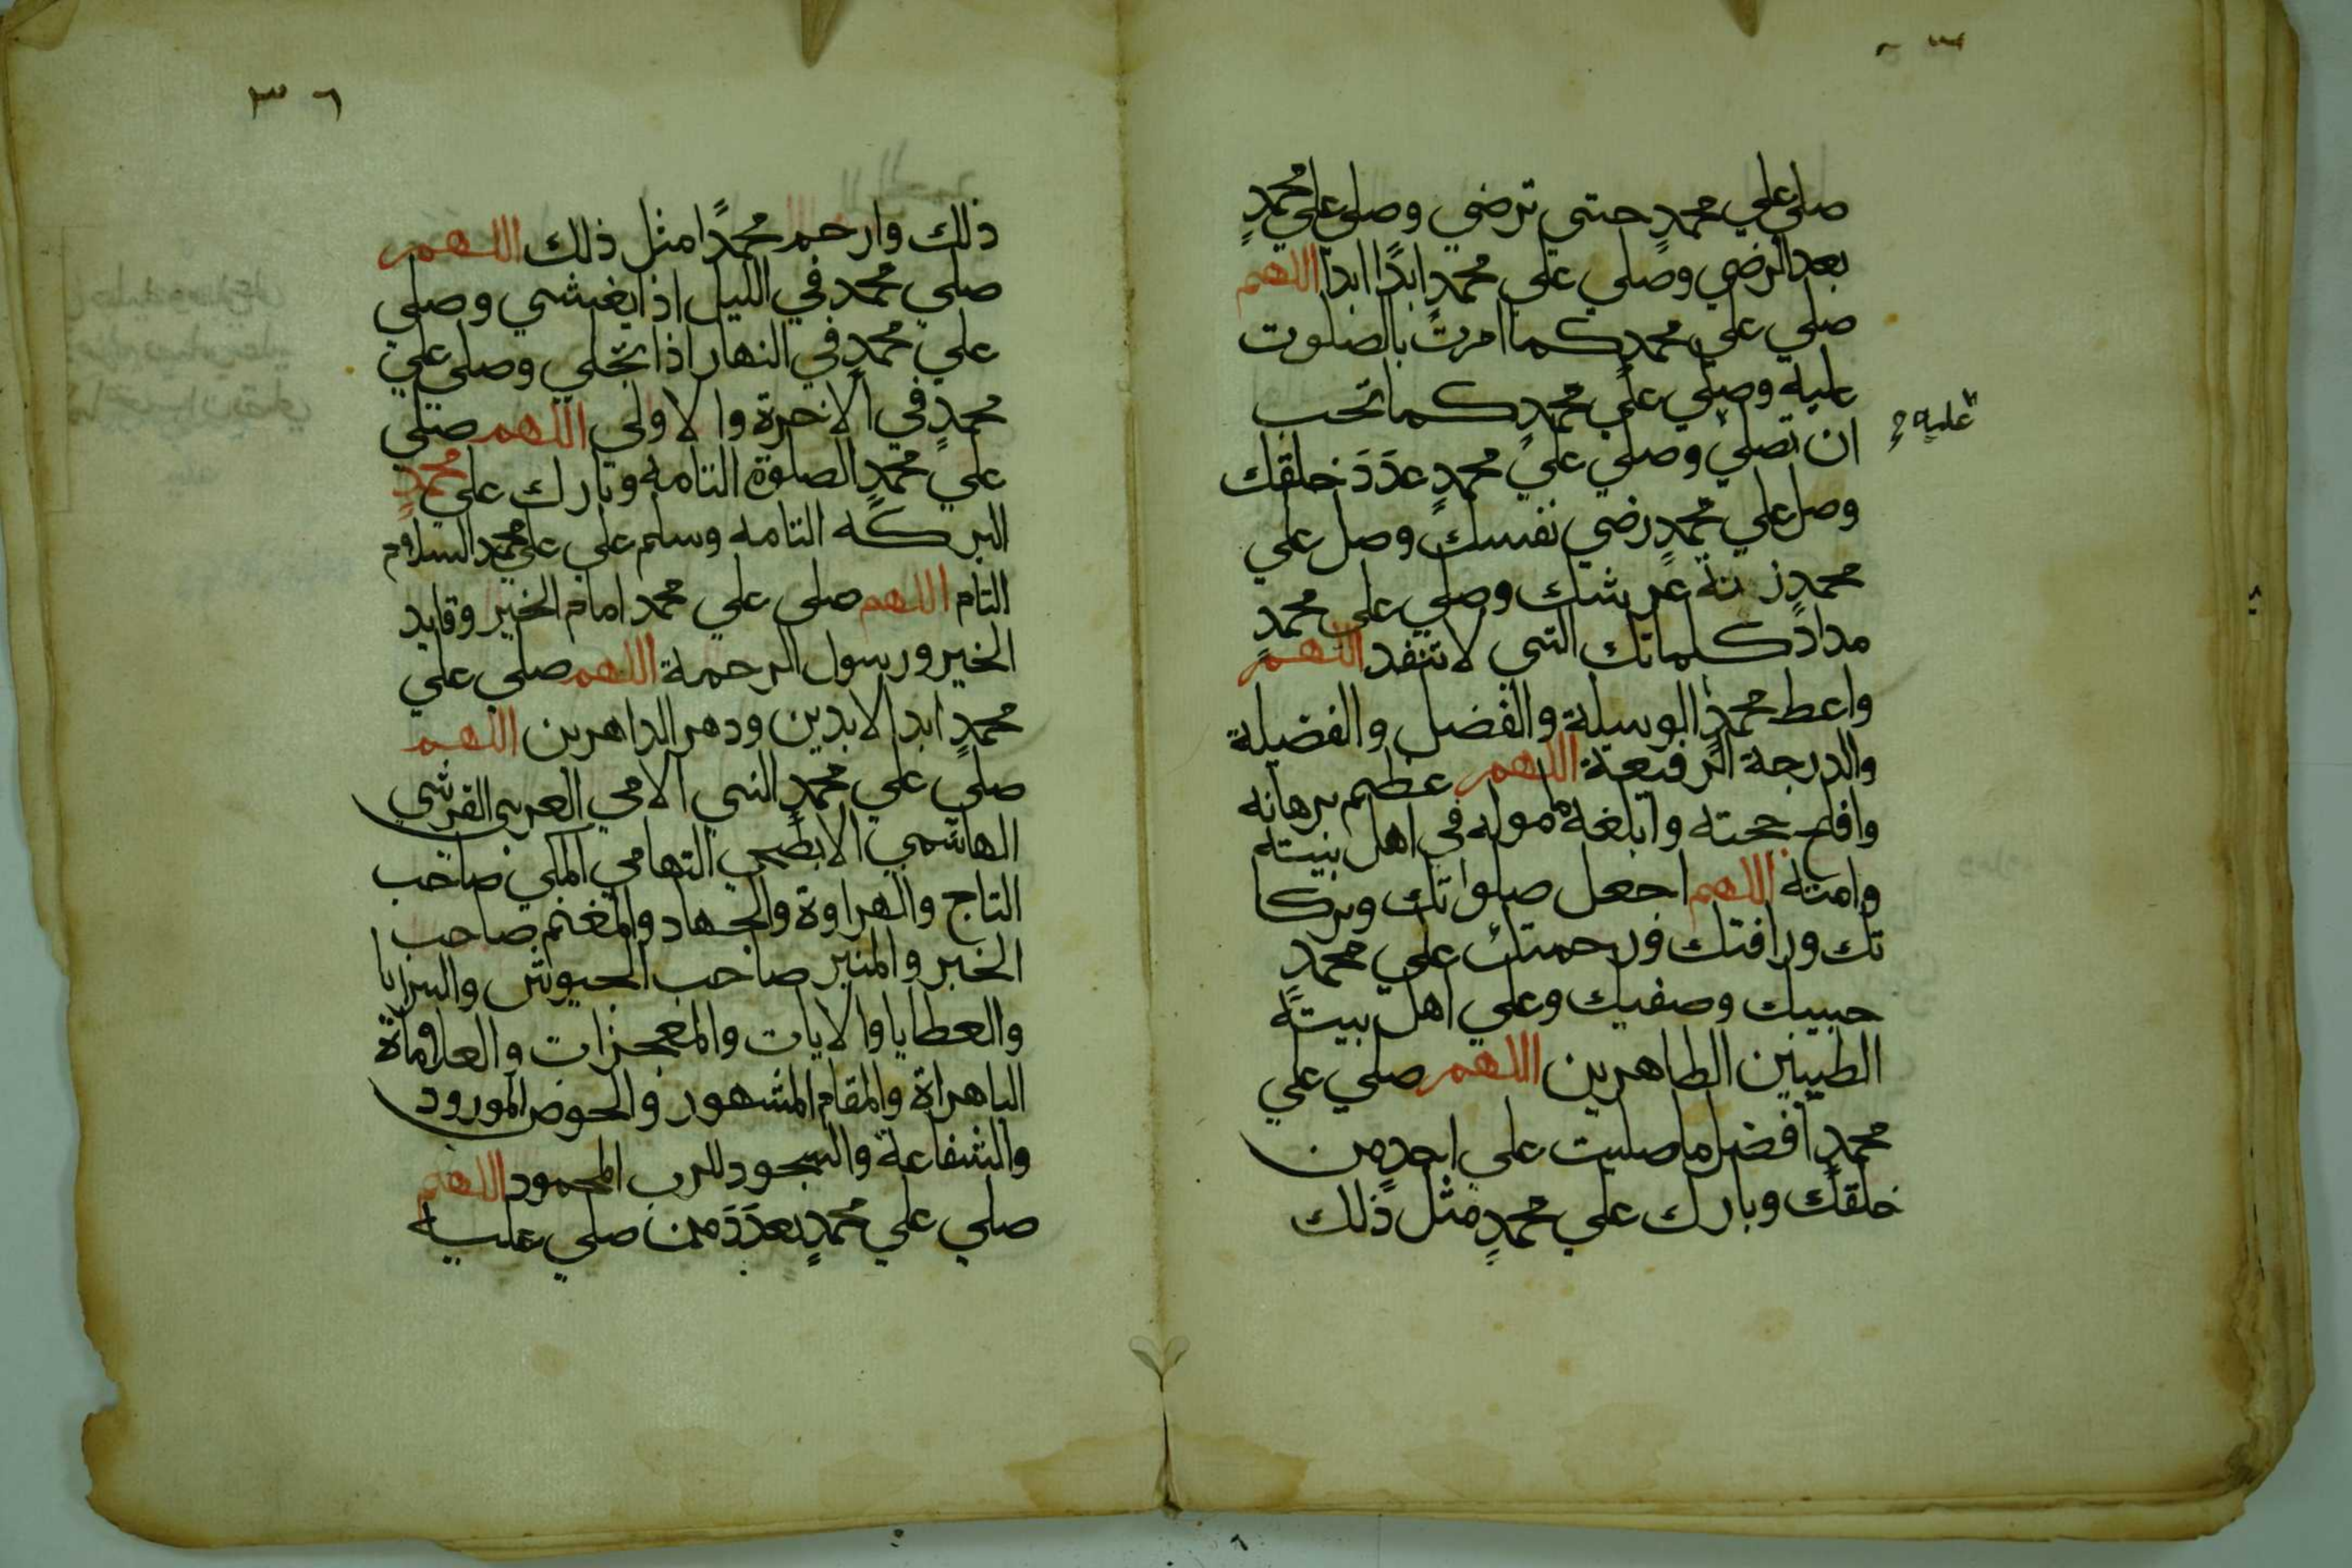 صلي علي محمدٍ حتي ترضي وصلي علي محمدٍ
بعد الرضي وصلي علي محمدٍ ابدًا ابدا اللهم
صلي علي محمدٍ كما امرت بالصلوت
عليه وصلي علي محمدٍ كما تحب
ان تصلي وصلي علي محمدٍ عدَدَ خلقك
عليه
وصل علي محمدٍ رضي نفسك وصل علي
محمدٍ زنة عرشك وصلي علي محمدٍ
مداد كلماتك التي لا تنفد اللهم
واعط محمدٍ الوسيلة والفضل والفضيلة
والدرجة الرفيعة اللهم عظيم برهانه
وافلج حجته وابلغه ماموله في اهل بيته
وامته اللهم اجعل صلواتك وبركا
تك ورافتك ورحمتك علي محمدٍ
حبيبك وصفيك وعلي اهل بيته
الطيبين الطاهرين اللهم صلي علي
محمدٍ افضل ما صليت علي احدٍ من
خلقك وبارك علي محمدٍ مثل ذلك
٣٦
ذلك وارحم محمدًا مثل ذلك اللهم
صلي محمد في الليل اذا يغشي وصلي
علي محمدٍ في النهار اذا تجلي وصلي علي
محمدٍ في الاخرة والاولي اللهم صلي
علي محمدٍ الصلوة التامه وبارك علي محمدٍ
البركه التامه وسلم علي علي محمد السلام
التام اللهم صلي علي محمد امام الخير وقايد
الخير ورسول الرحمة اللهم صلي علي
محمدٍ ابد الابدين ودهر الداهرين اللهم
صلي علي محمدٍ النبي الامي العربي القرشي
الهاشمي الابطحي التهامي المكي صاحب
التاج والهراوة والجهاد والمغنم صاحب
الخير والمنبر صاحب الجيوش والسرايا
والعطايا والايات والمعجزات والعلاماة
الباهراة والمقام المشهور والحوض المورود
والشفاعة والسجود للرب المحمود اللهم
صلي علي محمدٍ بعدَدَ من صلي عليه